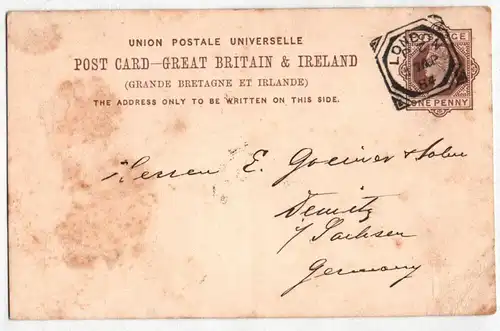 UNION POSTALE UNIVERSELLE
POST CARD—GREAT BRITAIN & IRELAND
(GRANDE BRETAGNE ET IRLANDE)
THE ADDRESS ONLY TO BE WRITTEN ON THIS SIDE.
LONDON
ONE PENNY
Herren E. Greiner & Sohn
Deuitz
i/ Sachsen
Germany